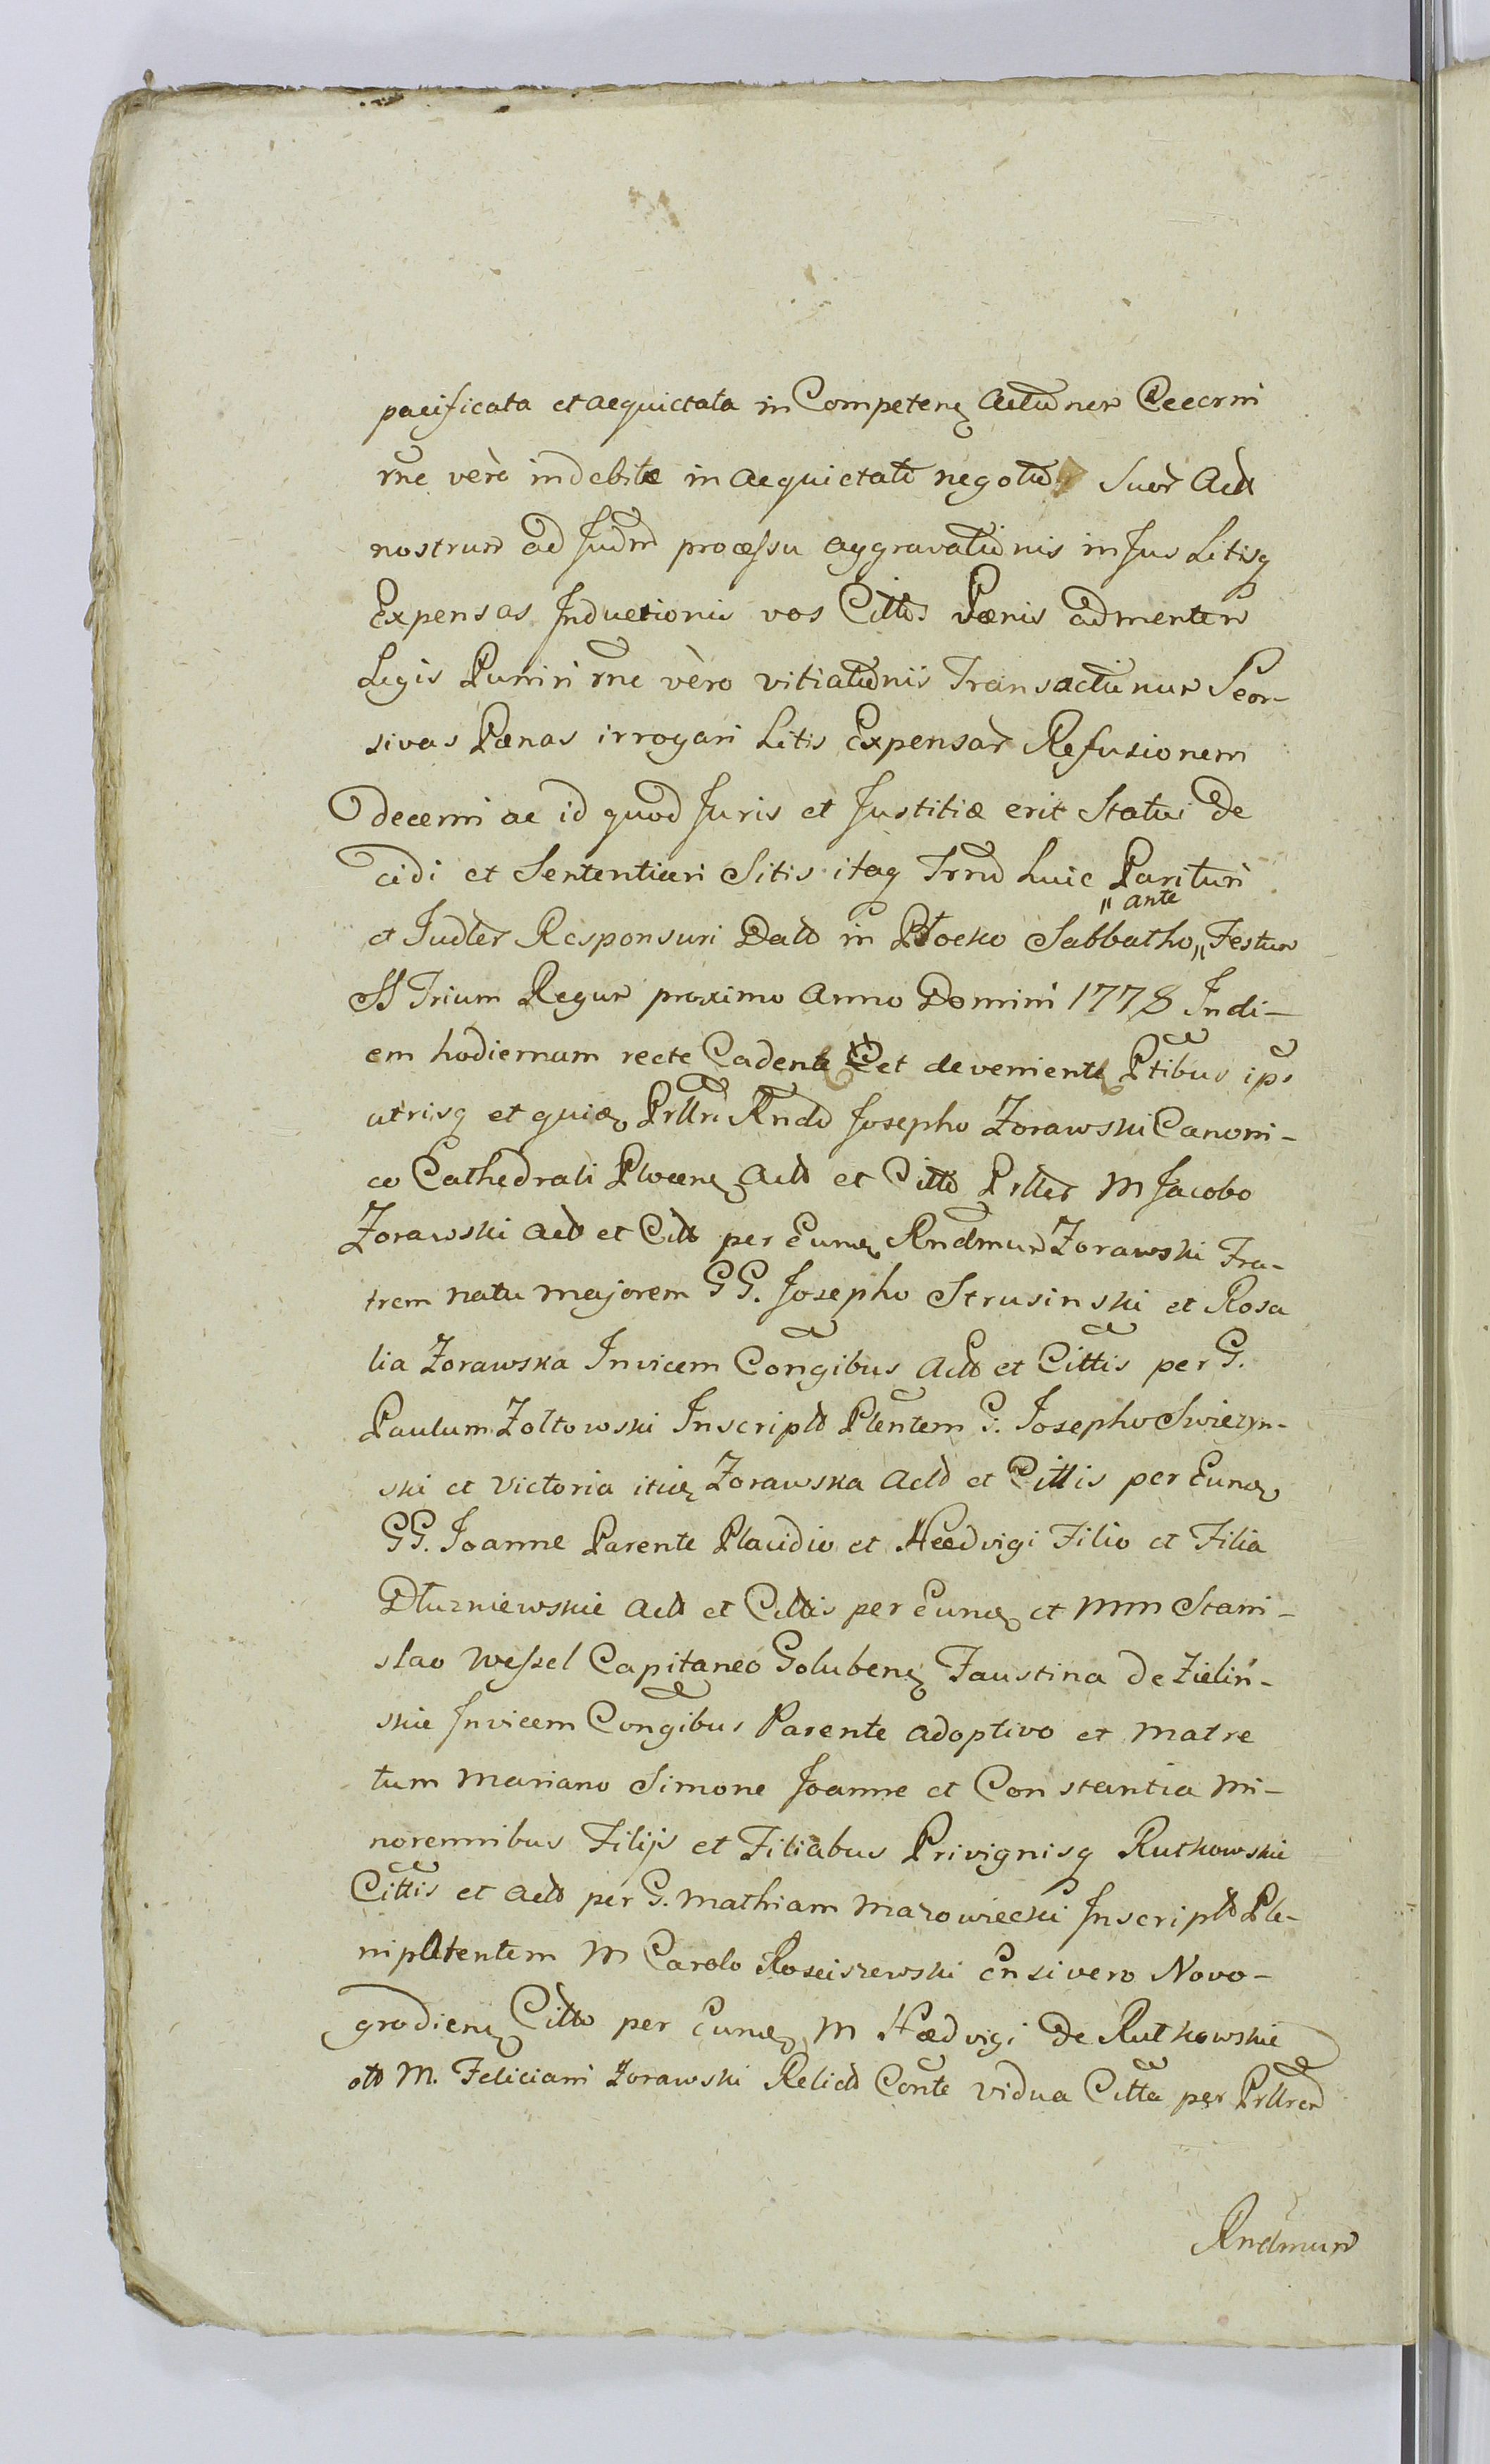 pacificata et aequietata in Competen Actionem Decerni
rne verò indebitæ in aequietatio negotio Suor Actt
nostrum ad Judm processu aggravationis in Jus Litisq
Expensas Inductionis vos Cittos Pænis ad mentem
Legis Puniri rne vèro vitiationis Transactionum Seor-
sivas Pænas irrogari Litis Expensar Refusionem
decerni ac id quod Juris et Justitiæ erit Statui De
cidi et Sententiari Sitis itaq Trmo huic Parituri
et Judler Responsuri Datt in Płocko Sabbatho „ ante „ Festum
SS Trium Regum proximo Anno Domini 1778 In di-
em hodiernam recte Cadente et deveniente Ptibus ips
utrisq et quia Prllri Rndo Josepho Zorawski Canoni-
co Cathedrali Plocen Actt et Citto Prller M Jacobo
Zorawski Actt et Citt per Eund Rndmum Zorawski Fra-
trem natu majorem GG. Josepho Strusinski et Rosa
lia Zorawska Invicem Congibus Actt et Cittis per G.
Paulum Zołtowski Inscriptt Plentem G. Josepho Swiezyn-
ski et Victoria itid Zorawska Actt et Cittis per Eund
GG. Joanne Parente Placidio et Heedvigi Filio et Filia
Dłuzniewskie Actt et Cittis per Eund et Mm Stani-
slao Wessel Capitaneo Goluben Faustina de Zieliń-
skie Invicem Congibus Parente adoptivo et Matre
tum Mariano Simone Joanne et Constantia Mi-
norennibus Filijs et Filiabus Privignisq Rutkowskie
Cittis et Actt per G. Mathiam Mazowiecki Inscriptt Ple-
nipotentem M Carolo Rosciszewski Ensivero Novo-
grodien Citto per Eund M Hædvigi De Rutkowskie
ott M. Feliciani Zorawski Relictt Conte vidua Citta per Prllrem
Rndmum